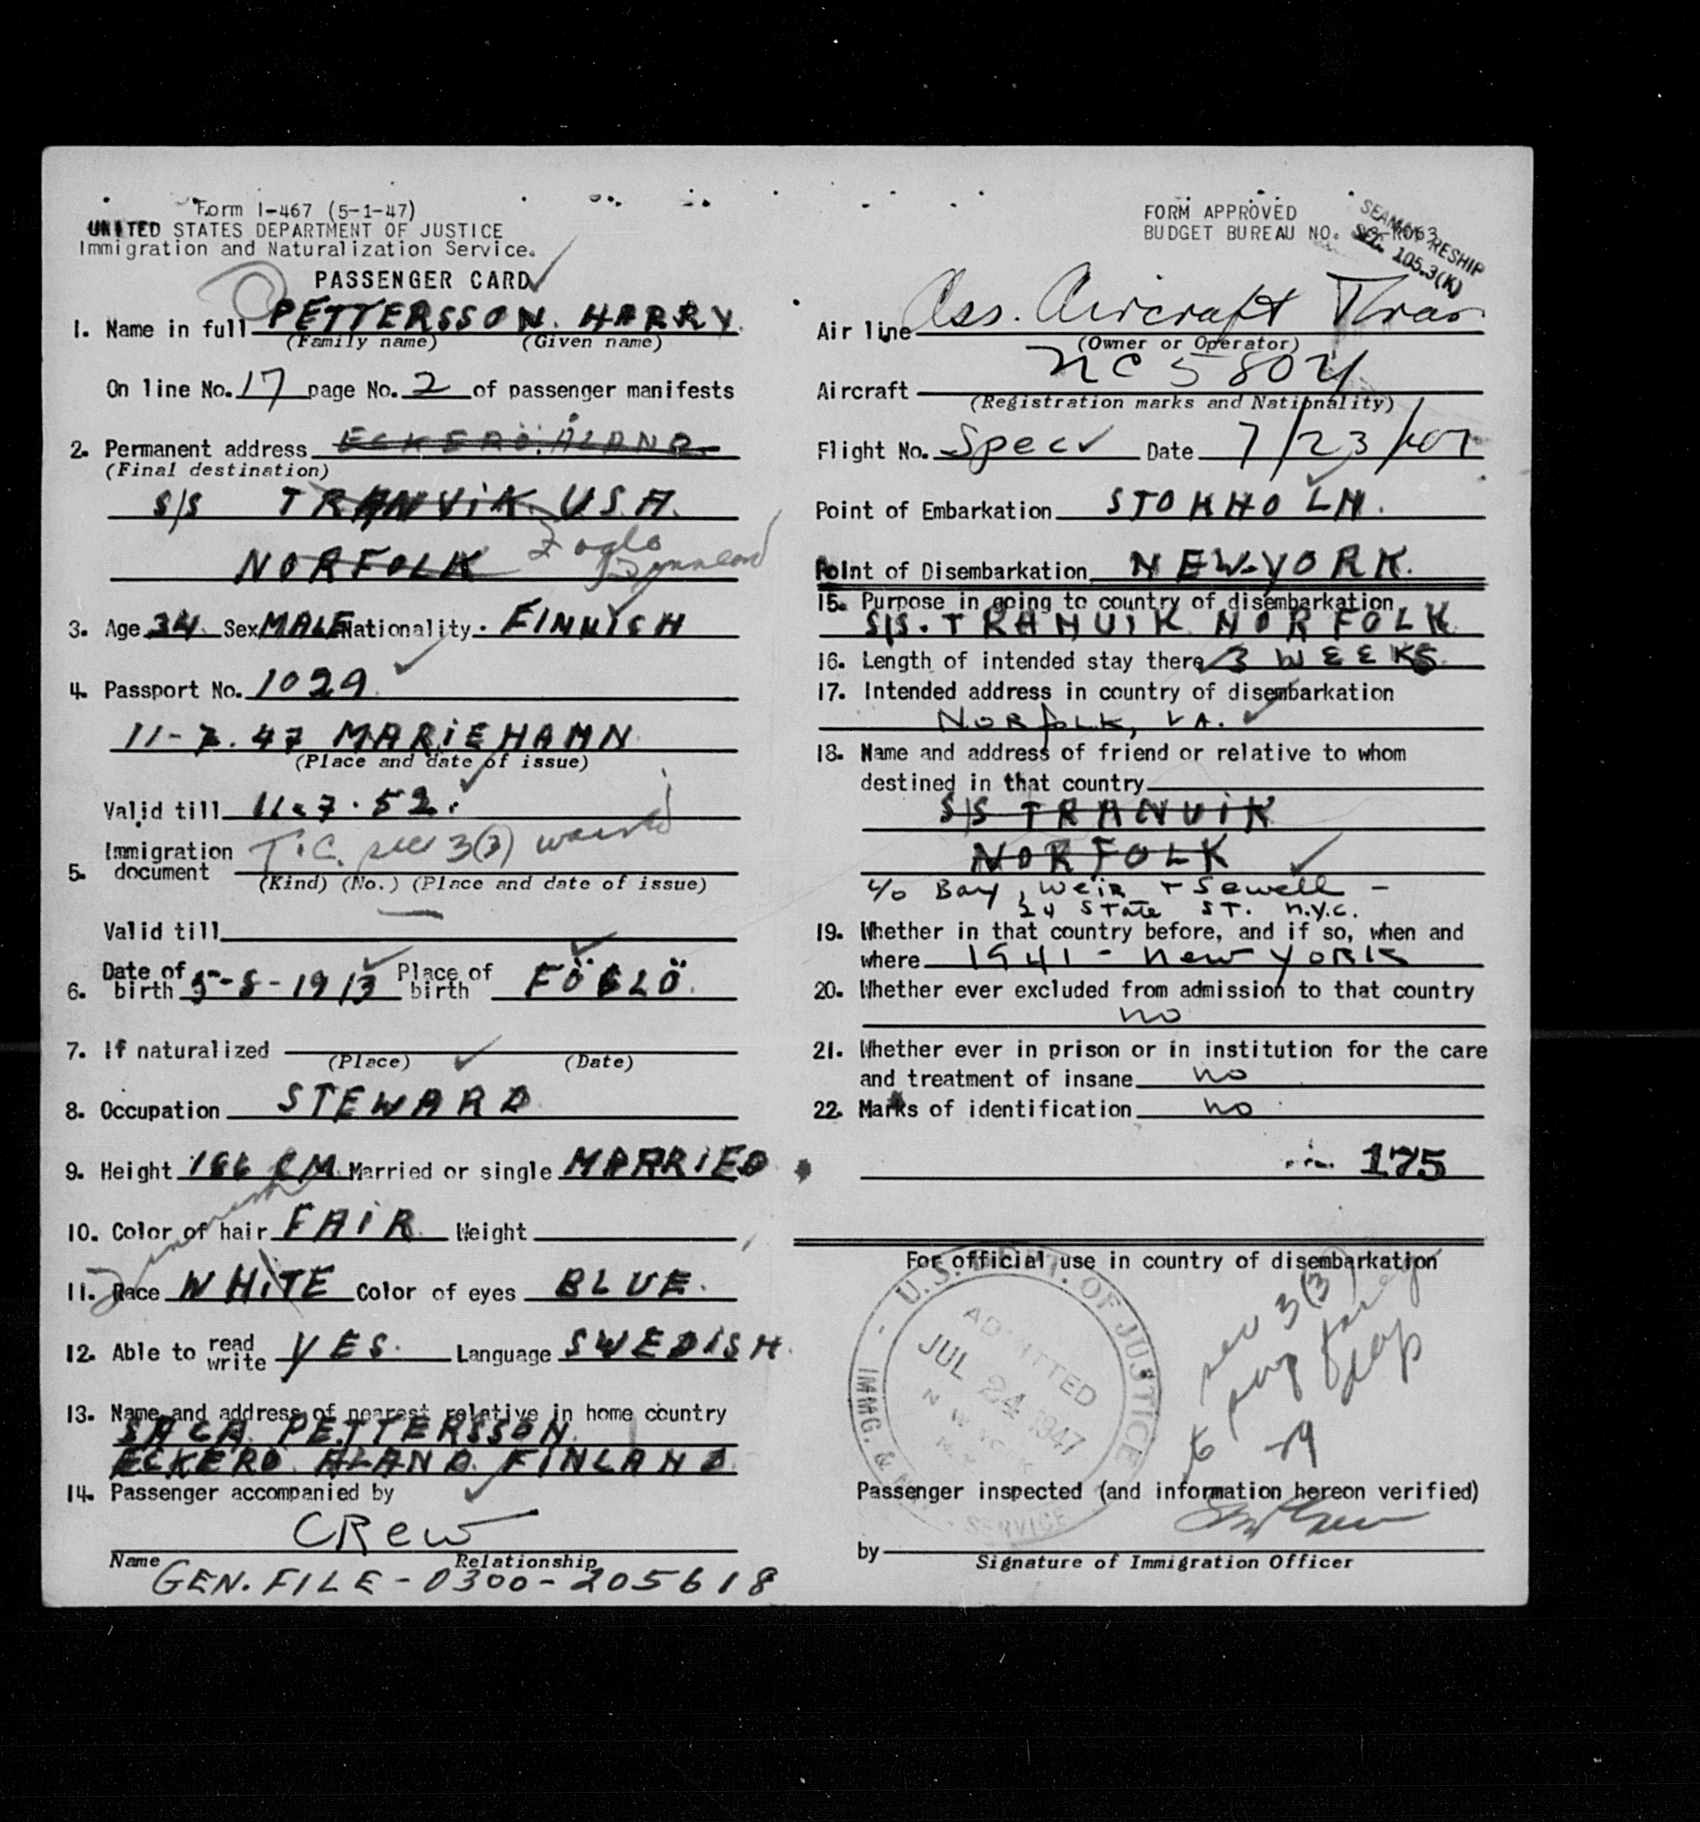 Form I-467 (5-1-47)
UNITED STATES DEPARTMENT OF JUSTICE
Immigration and Naturalization Service.
PASSENGER CARD
1. Name in full PETTERSSON. HARRY.
(Family name) (Given name)
On line No. 17 page No. 2 of passenger manifests
2. Permanent address ECKERÖ. ÅLAND.
(Final destination)
S/S TRANVIK. U.S.A.
NORFOLK
3. Age 34. Sex MALE Nationality. FINNISH
4. Passport No. 1029.
11-7.47 MARIEHAMN.
(Place and date of issue)
Valid till 11.7.52.
Immigration
5. document T.C. sec 3(3) waived
(Kind) (No.) (Place and date of issue)
Valid till
6. Date of birth 5-8-1913 Place of birth FÖGLÖ.
7. If naturalized
(Place) (Date)
8. Occupation STEWARD
9. Height 166 CM. Married or single MARRIED
10. Color of hair FAIR. Weight
11. Race WHITE Color of eyes BLUE.
12. Able to read write YES. Language SWEDISH.
13. Name and address of nearest relative in home country
SAGA. PETTERSSON.
ECKERÖ. ÅLAND. FINLAND.
14. Passenger accompanied by
CREW
Name Relationship
GEN. FILE-0300-205618
FORM APPROVED
BUDGET BUREAU NO.
SEAMAN RESHIP
SEC. 105.3(K)
Air line Ass. Aircraft Tran
(Owner or Operator)
Aircraft NC5804
(Registration marks and Nationality)
Flight No. Spec Date 7/23/47
Point of Embarkation STOKHOLM.
Point of Disembarkation NEW-YORK.
15. Purpose in going to country of disembarkation
S/S. TRANVIK NORFOLK
16. Length of intended stay there 3 WEEKS
17. Intended address in country of disembarkation
NORFOLK, VA.
18. Name and address of friend or relative to whom
destined in that country
S/S TRANVIK
NORFOLK
c/o Bay, Weir + Sewell -
24 State ST. N.Y.C.
19. Whether in that country before, and if so, when and
where 1941 - New YORK
20. Whether ever excluded from admission to that country
no
21. Whether ever in prison or in institution for the care
and treatment of insane no
22. Marks of identification no
175
For official use in country of disembarkation
U.S. DEPT. OF JUSTICE
ADMITTED
JUL 24 1947
IMMG. &
SERVICE
sec 3(3)
Passenger inspected (and information hereon verified)
by
Signature of Immigration Officer